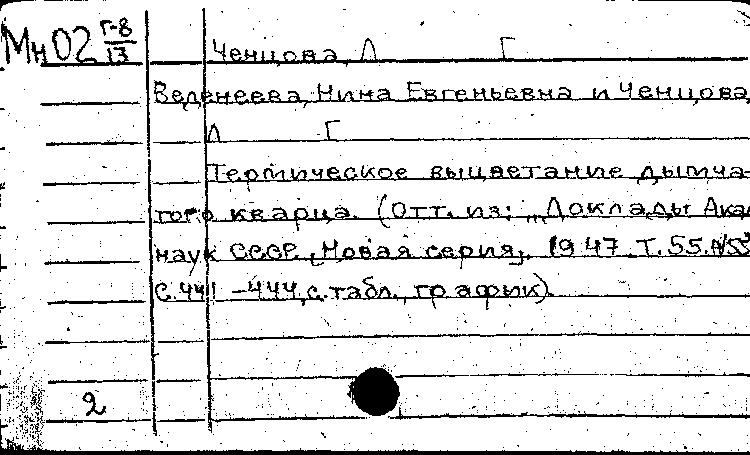 Мн02 Г-8/13
Ченцова, Л Г
Веденеева, Нина Евгеньевна и Ченцова,
Л Г
Термическое выцветание дымча-
того кварца. (Отт. из: „Доклады Акад
наук СССР. Новая серия", 1947. Т. 55. №5
С. 441-444, с. табл., график).
2